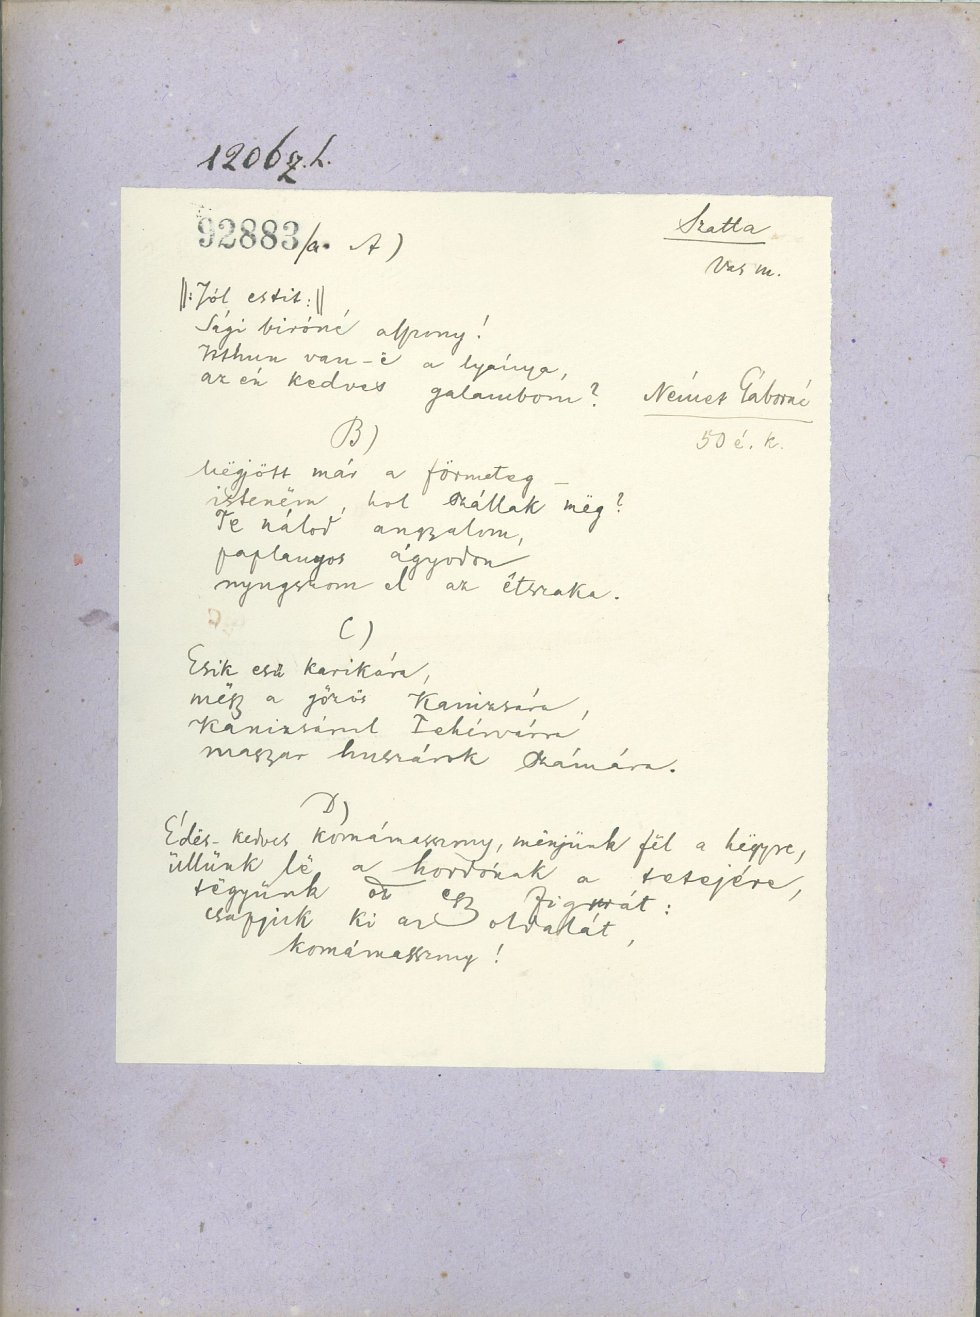 1206 z. l.
92883/a. A)
Szatta
Vas m.
||: Jól estit :||
Sági biróné asszony!
itthun van-ë a lyánya,
az én kedves galambom?
Német Gáborné
50 é. k.
B)
Mëgjött már a förmeteg –
istenëm, hol szállak mëg?
Te nálod angyalom,
paplanyos ágyodon
nyugszom el az étszaka.
C)
Esik eső karikára,
mëgy a gőzös Kanizsára,
Kanizsárul Fehérvárra
magyar huszárok számára.
D)
Édës-kedves komámasszony, mënjünk fël a hëgyre,
üllünk lë a hordónak a tetejére,
tëgyünk ott egy figurát:
csapjuk ki az oldalát,
komámasszony!